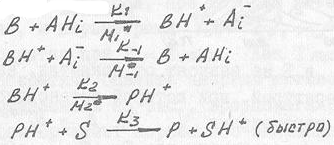 B + AHi K₁ M₁* BH⁺ + Ai⁻
BH⁺ + Ai⁻ K₋₁ M₋₁* B + AHi
BH⁺ K₂ M₂* PH⁺
PH⁺ + S K₃ P + SH⁺ (быстро)